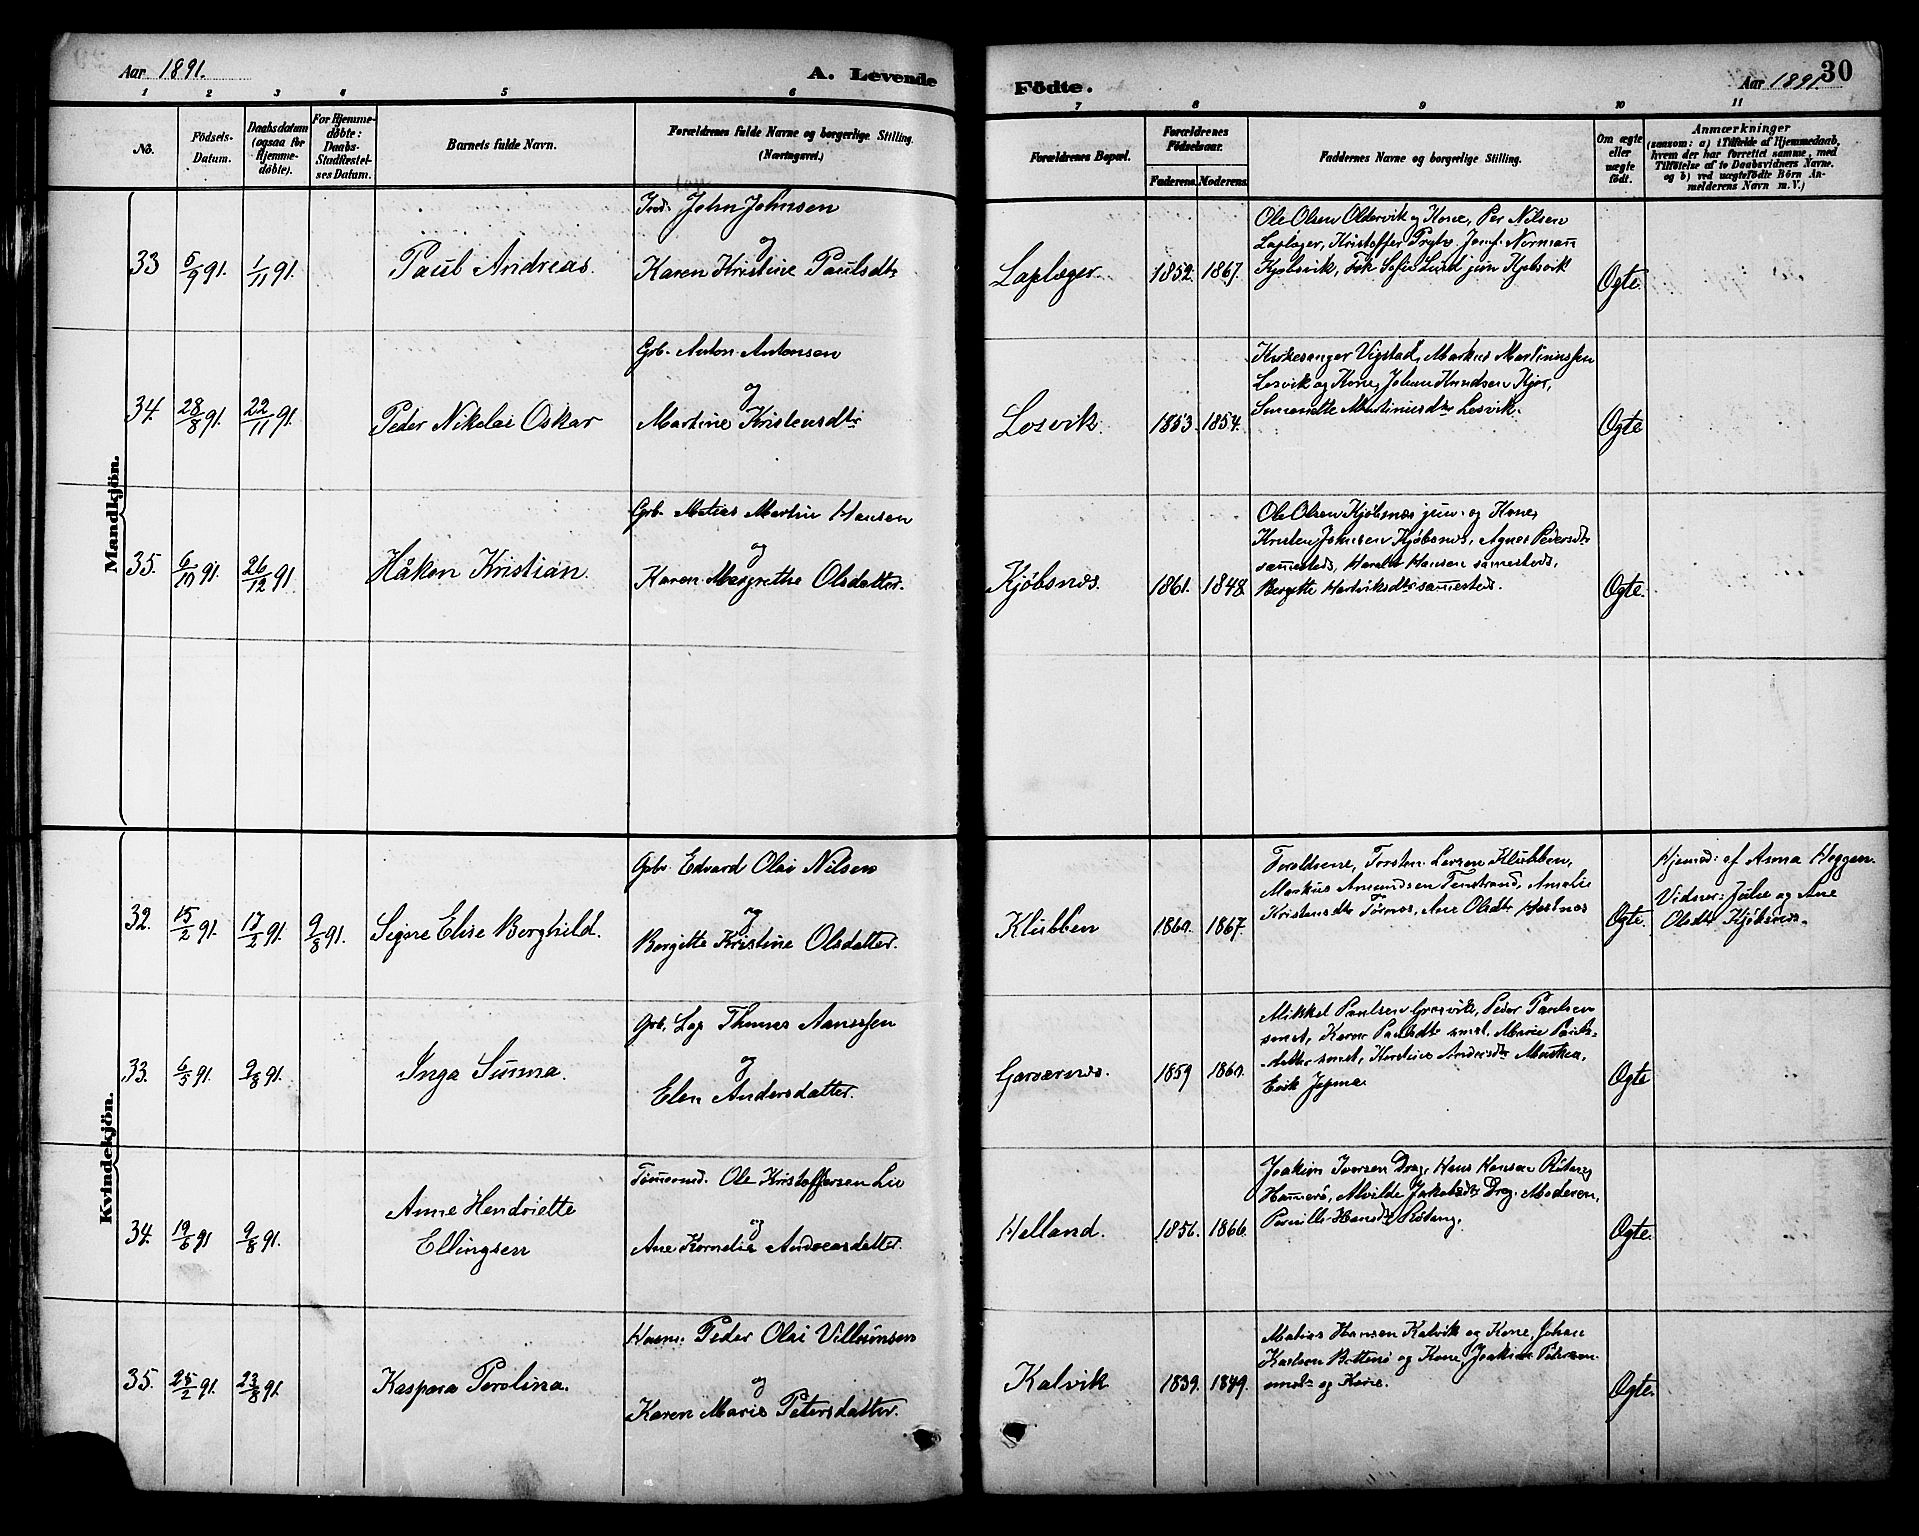 Aar 1891.
A. Levende
Födte.
Aar 1891.
30
1 2 3 4 5 6 7 8 9 10 11
No.
Födsels-
Datum.
Daabsdatum
(ogsaa for
Hjemme-
döbte).
For Hjemme-
döbte:
Daabs-
Stadfæstel-
ses Datum.
Barnets fulde Navn.
Forældrenes fulde Navne og borgerlige Stilling.
(Næringsvei.)
Forældrenes Bopæl.
Forældrenes
Födselsaar.
Faderens. Moderens.
Faddernes Navne og borgerlige Stilling.
Om ægte
eller
uægte
födt.
Anmærkninger
(saasom: a) i Tilfælde af Hjemmedaab,
hvem der har forrettet samme, med
Tilföielse af to Daabsvidners Navne,
og b) ved uægtefödte Börn An-
melderens Navn m. V.)
Mandkjön.
33 5/9 91. 1/11 91. Paul Andreas.
Ind. John Johnsen
og
Karen Kristine Paulsdtr
Laplæger 1852. 1867.
Ole Olsen Oldervik og Kone, Per Nilsen
Laplæger, Kristoffer Jomf. Normann
Kjøbsvik, Frk Sofie Lund jun Kjøbsvik
Ogte.
34. 28/8 91. 22/11 91. Peder Nikolai Oskar
Grb. Anton Antonsen
og
Martine Kristensdtr
Losvik. 1853. 1854.
Kirkesanger Vigstad, Markus Martinussen
Losvik og Kone, Johan Knudsen Kjør,
Martinusdtr Losvik.
Ogte
35. 6/10 91. 26/12 91. Håkon Kristian.
Grb. Matias Martin Hansen
og
Karen Margrethe Olsdatter.
Kjøbsnæs. 1861. 1848.
Ole Olsen Kjøbsnæs jun. og Kone,
Kristen Johnsen Kjøbsnæs, Agnes Pedersdtr
sammesteds, Harald Hansen sammesteds,
Bergitte Hartviksdtr sammesteds.
Ogte.
Kvindekjön.
32. 15/2 91. 17/2 91. 9/8 91. Signe Elise Borghild.
Gbr. Edvard Olai Nilsen
og
Bergitte Kristine Olsdatter.
Klubben 1860. 1867.
Forældrene, Torsten Larsen Klubben,
Markus Amundsen Tenstrand, Amalie
Kristensdtr Tørnes, Ane Olsdtr Hestnes
Ogte.
Hjemd: af Anna Heggen.
Vidner: Julie og Ane
Olsdtr Kjøbsnæs.
33. 6/5 91. 9/8 91. Inga Sunna.
Grb. Lap Thomas Aanssen
og
Elen Andersdatter.
1859 1860.
Mikkel Paulsen Græsvik, Peder Paulsen
smst, Karen Paulsdtr smst, Marie Pauls-
datter smst, Kirstine Andersdtr
Erik
Ogte
34. 19/6 91 9/8 91. Anne Hendriette
Ellingsen
Tømmermd. Ole Kristoffersen Lie
og
Ane Kornelie Andreasdatter.
Helland. 1856. 1866.
Joakim Iversen Drag, Hans Hansen Råtang
Hammerø, Alvilde Jakobsdtr Drag. Moderen,
Pernille Hansdtr Råtang.
Ogte.
35. 25/2 91. 23/8 91. Kaspara Perolina.
Huusm. Peder Olai Villumsen
og
Karen Marie Petersdatter.
Kalvik 1839. 1849.
Matias Hansen Kalvik og Kone, Johan
Karlsen Bottenø og Kone, Joakim Petersen
smst. og Kone.
Ogte.